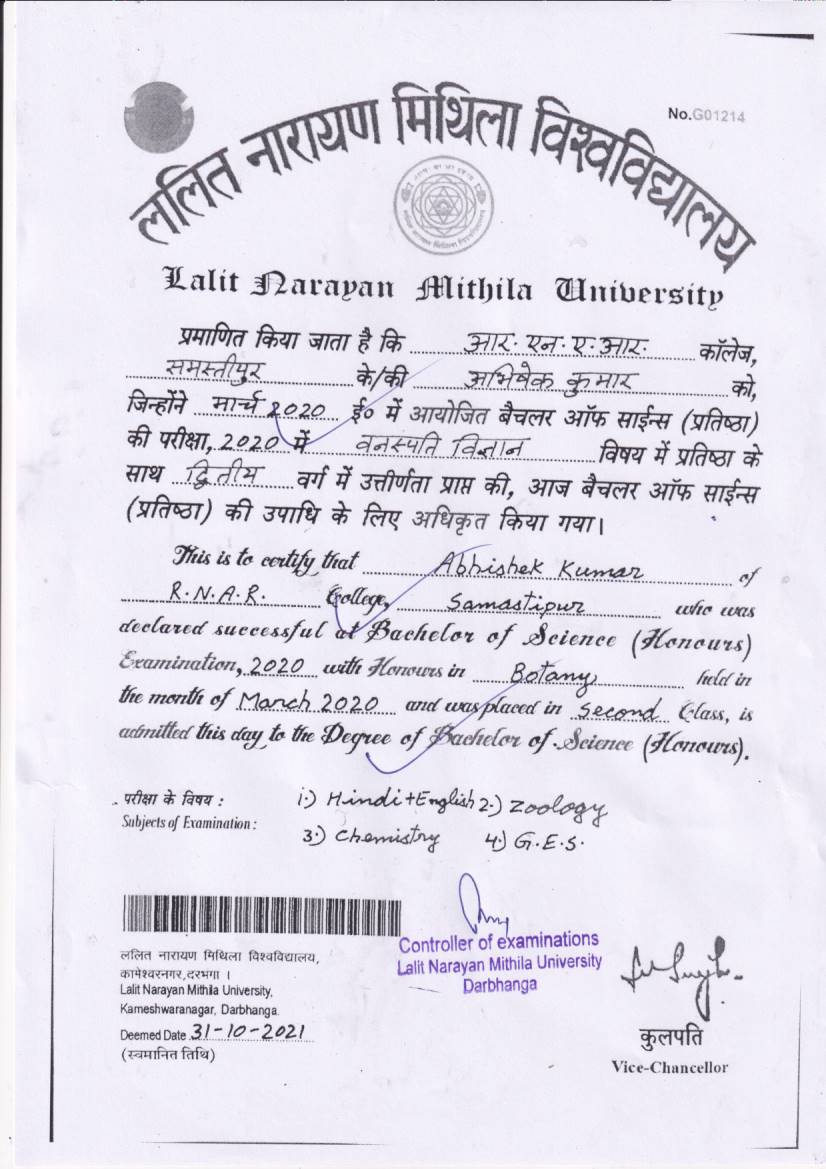 No.G01214
ललित नारायण मिथिला विश्वविद्यालय
Lalit Narayan Mithila University
प्रमाणित किया जाता है कि आर. एन. ए. आर. कॉलेज,
समस्तीपुर के/की अभिषेक कुमार को,
जिन्होंने मार्च 2020 ई० में आयोजित बैचलर ऑफ साईन्स (प्रतिष्ठा)
की परीक्षा, 2020 में वनस्पति विज्ञान विषय में प्रतिष्ठा के
साथ द्वितीय वर्ग में उत्तीर्णता प्राप्त की, आज बैचलर ऑफ साईन्स
(प्रतिष्ठा) की उपाधि के लिए अधिकृत किया गया।
This is to certify that Abhishek Kumar of
R.N.A.R. College, Samastipur who was
declared successful at Bachelor of Science (Honours)
Examination, 2020 with Honours in Botany held in
the month of March 2020 and was placed in Second Class, is
admitted this day to the Degree of Bachelor of Science (Honours).
परीक्षा के विषय : 1.) Hindi+English 2.) Zoology
Subjects of Examination : 3.) Chemistry 4.) G.E.S.
Controller of examinations
Lalit Narayan Mithila University
Darbhanga
ललित नारायण मिथिला विश्वविद्यालय,
कामेश्वरनगर, दरभंगा ।
Lalit Narayan Mithila University,
Kameshwaranagar, Darbhanga.
Deemed Date 31-10-2021
(स्वमानित तिथि)
कुलपति
Vice-Chancellor